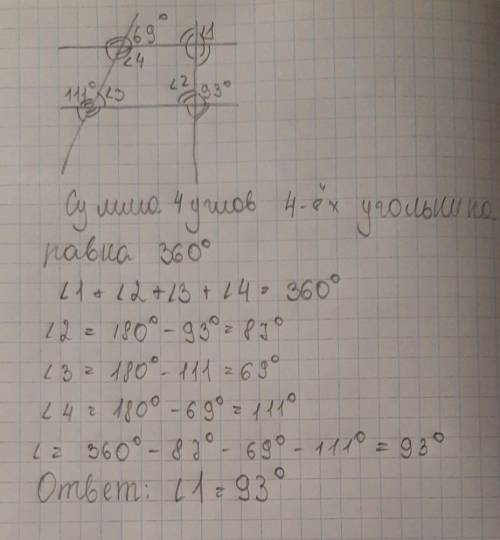 69° ∠1
∠4
111° ∠3 ∠2 93°
Сумма 4 углов 4-ёх угольника
равна 360°
∠1 + ∠2 + ∠3 + ∠4 = 360°
∠2 = 180° - 93° = 87°
∠3 = 180° - 111 = 69°
∠4 = 180° - 69° = 111°
∠ = 360° - 87° - 69° - 111° = 93°
Ответ: ∠1 = 93°